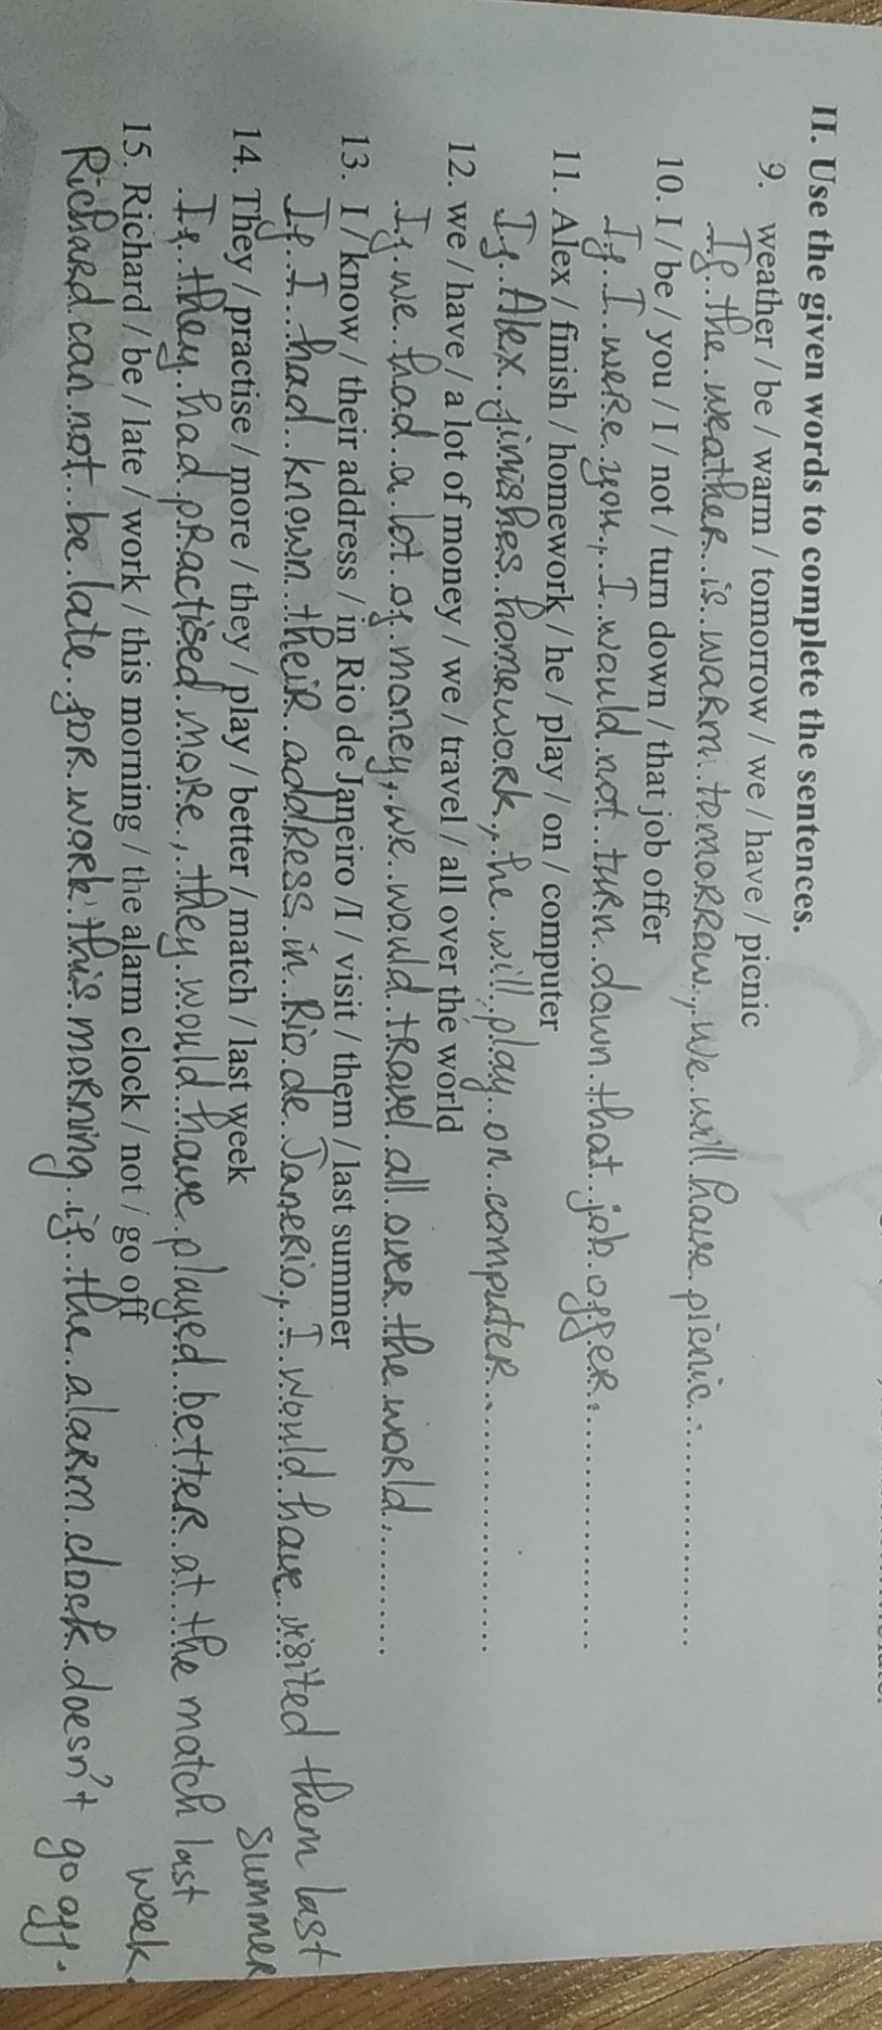 II. Use the given words to complete the sentences.
9. weather / be / warm / tomorrow / we / have / picnic
If the weather is warm tomorrow, we will have picnic.
10. I / be / you / I / not / turn down / that job offer
If I were you, I would not turn down that job offer.
11. Alex / finish / homework / he / play / on / computer
If Alex finishes homework, he will play on computer.
12. we / have / a lot of money / we / travel / all over the world
If we had a lot of money, we would travel all over the world.
13. I / know / their address / in Rio de Janeiro /I / visit / them / last summer
If I had known their address in Rio de Janerio, I would have visited them last
summer
14. They / practise / more / they / play / better / match / last week
If they had practised more, they would have played better at the match last
week.
15. Richard / be / late / work / this morning / the alarm clock / not / go off
Richard can not be late for work this morning if the alarm clock doesn't go off.